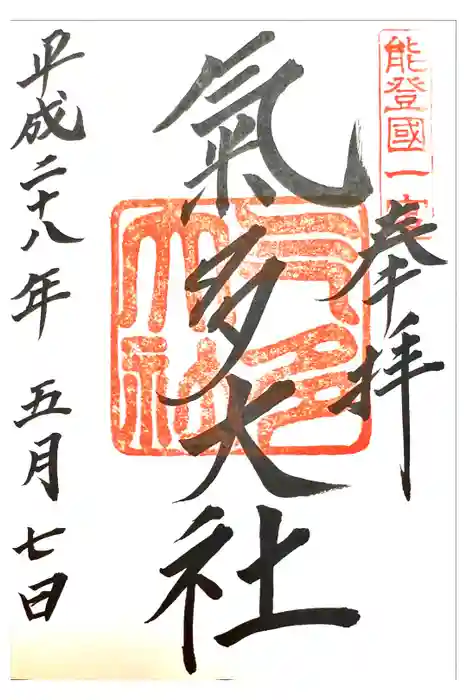 能登國一宮
奉拝
氣多大社
气多大社
平成二十八年 五月 七日